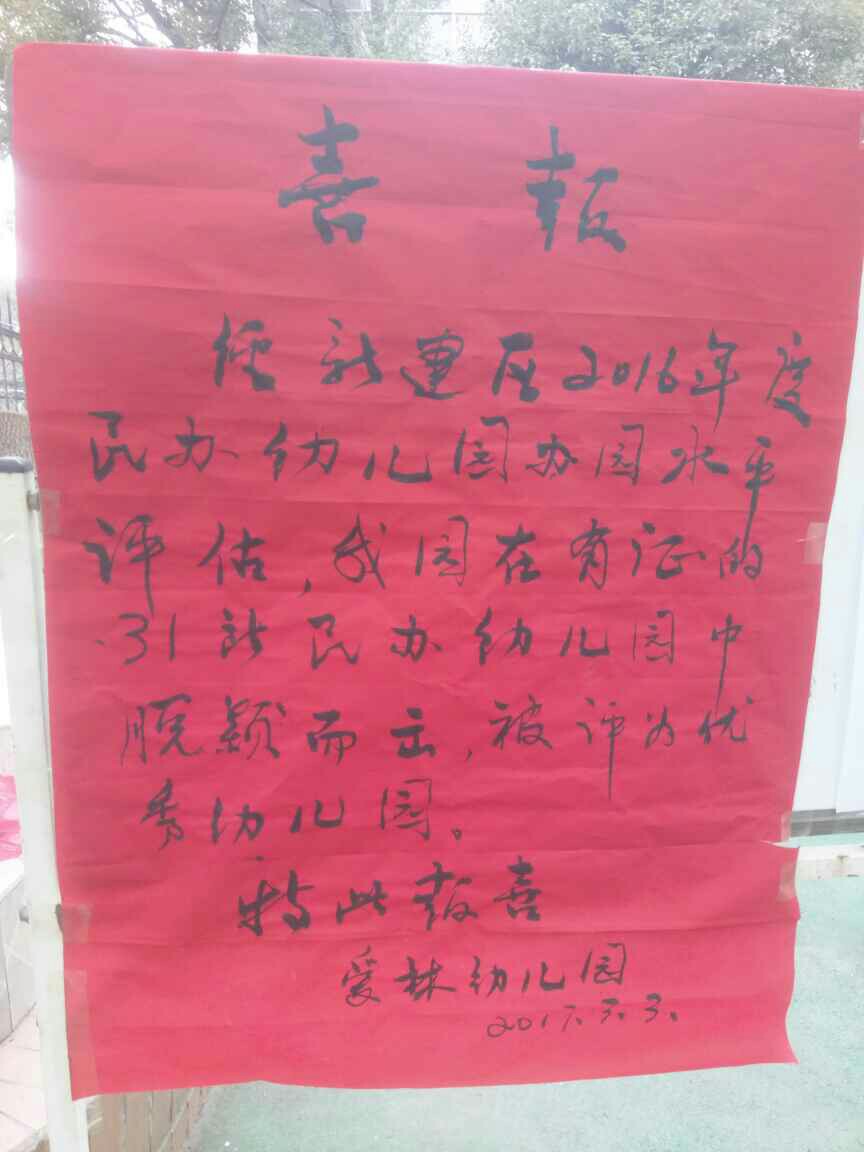 喜报
经新建区2016年度
民办幼儿园办园水平
评估,我园在有证的
31所民办幼儿园中
脱颖而出,被评为优
秀幼儿园。
特此报喜
爱林幼儿园
2017.3.3.